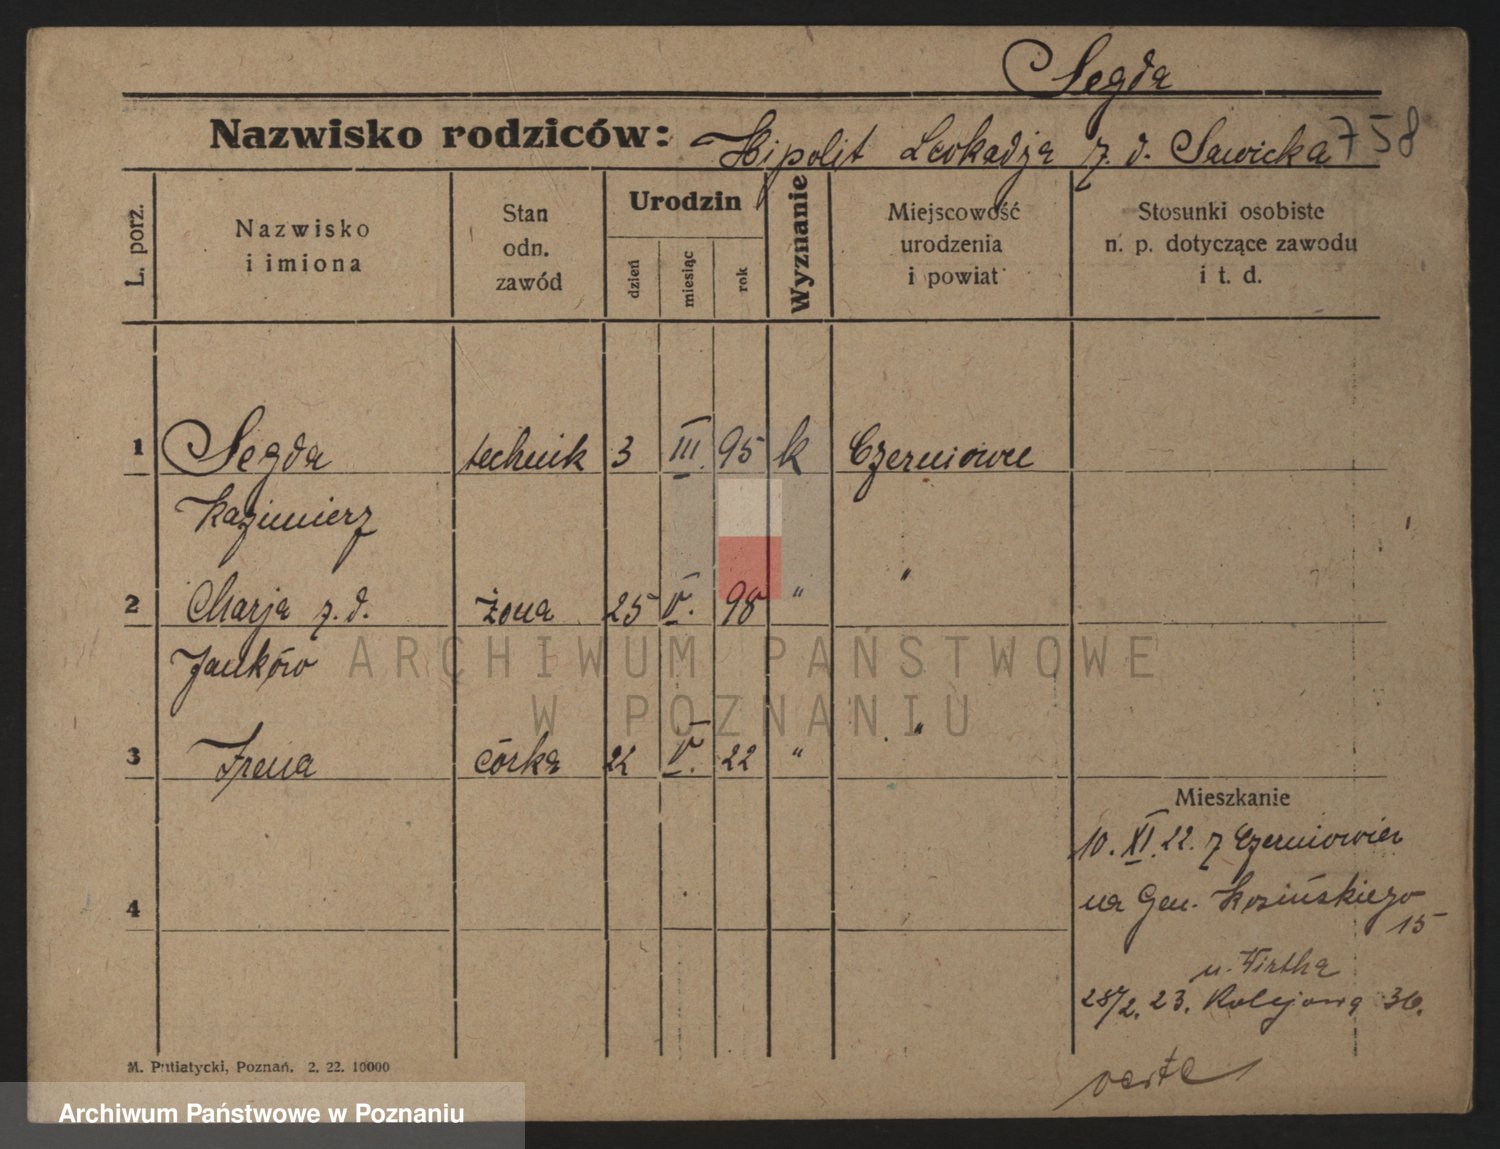 Segda
Nazwisko rodziców: Hipolit Leokadja z. d. Sawicka 758
L. porz.
Nazwisko
i imiona
Stan
odn.
zawód
Urodzin
dzień
miesiąc
rok
Wyznanie
Miejscowość
urodzenia
i powiat
Stosunki osobiste
n. p. dotyczące zawodu
i t. d.
1 Segda technik 3 III. 95 k Czerniowce
Kazimierz
2 Marja z. d. żona 25 V. 98 " "
Janków
3 Irena córka 22 V. 22 " "
Mieszkanie
10. XI. 22. z Czerniowiec
4
na Gen. Kosińskiego
15
u. Wirtha
28/2. 23. Kolejowa 36.
verte
M. Putiatycki, Poznań. 2. 22. 10000
ARCHIWUM PAŃSTWOWE
W POZNANIU
Archiwum Państwowe w Poznaniu